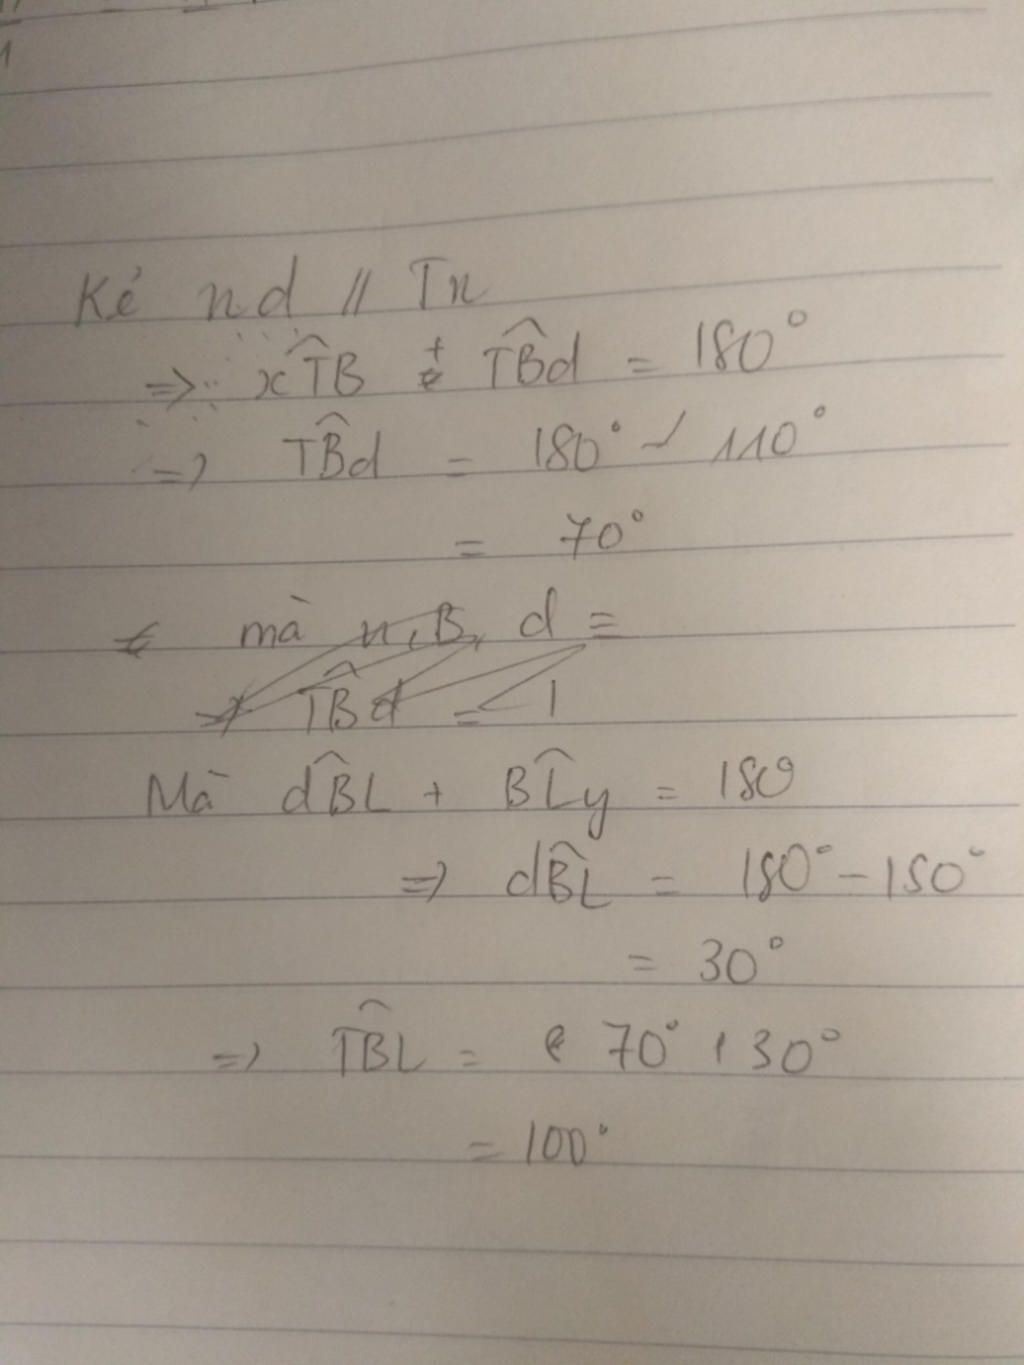 Kẻ nd // Tx
=> xT̂B + TB̂d = 180°
=> TB̂d = 180° - 110°
= 70°
mà n, B, d =
=> TB̂d = 1
Mà dB̂L + BL̂y = 180
=> dB̂L = 180° - 150°
= 30°
=> TB̂L = 70° + 30°
= 100°